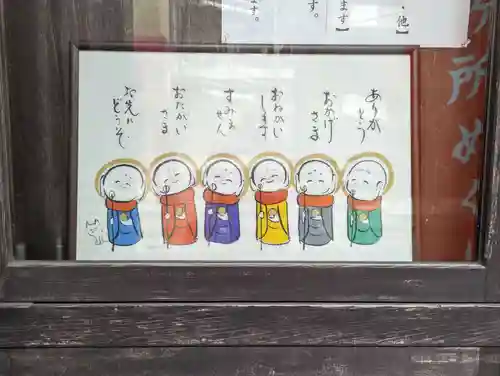 ありか
とう
おかげ
さま
おねかい
します
すみま
せん
おたがい
さま
お先に
どうぞ
ます】
・他】
す。
ます。
所めぐ